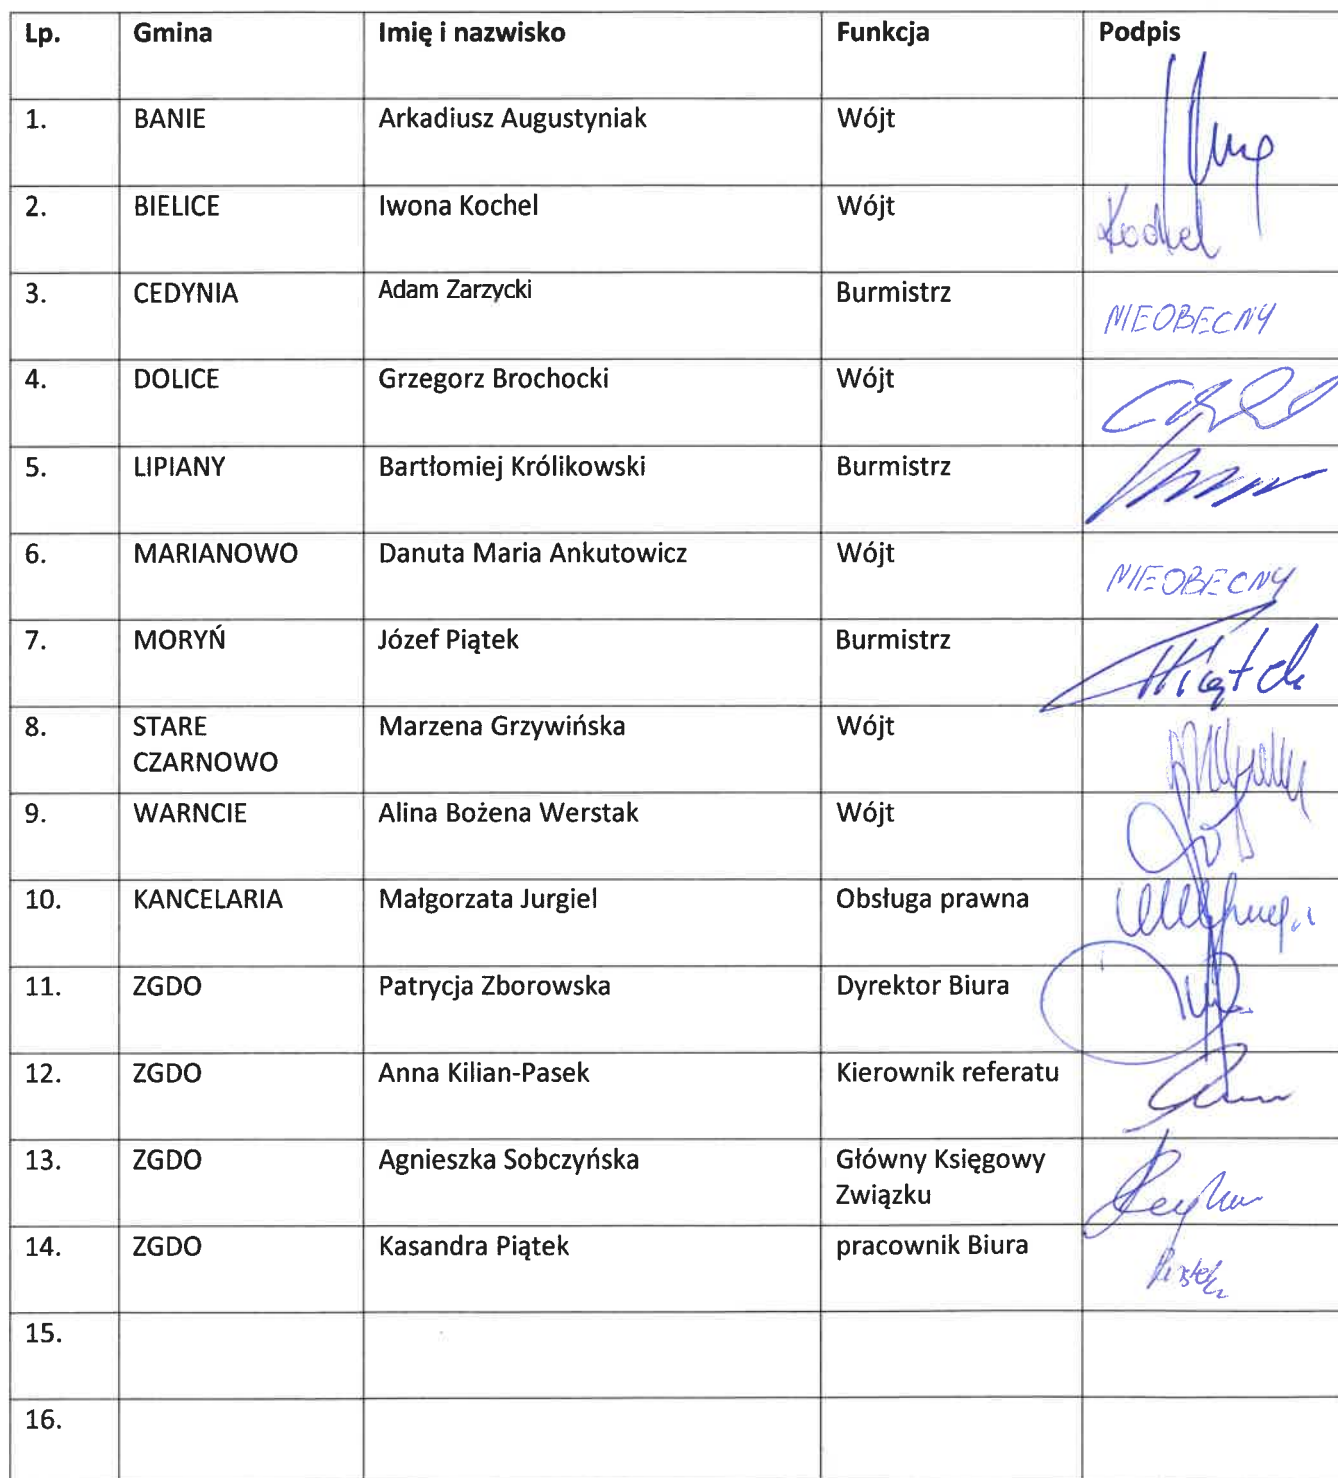 Lp. Gmina Imię i nazwisko Funkcja Podpis
1. BANIE Arkadiusz Augustyniak Wójt
2. BIELICE Iwona Kochel Wójt Kochel
3. CEDYNIA Adam Zarzycki Burmistrz NIEOBECNY
4. DOLICE Grzegorz Brochocki Wójt
5. LIPIANY Bartłomiej Królikowski Burmistrz
6. MARIANOWO Danuta Maria Ankutowicz Wójt NIEOBECNY
7. MORYŃ Józef Piątek Burmistrz Piątek
8. STARE Marzena Grzywińska Wójt
CZARNOWO
9. WARNCIE Alina Bożena Werstak Wójt
10. KANCELARIA Małgorzata Jurgiel Obsługa prawna
11. ZGDO Patrycja Zborowska Dyrektor Biura
12. ZGDO Anna Kilian-Pasek Kierownik referatu
13. ZGDO Agnieszka Sobczyńska Główny Księgowy
Związku
14. ZGDO Kasandra Piątek pracownik Biura
15.
16.